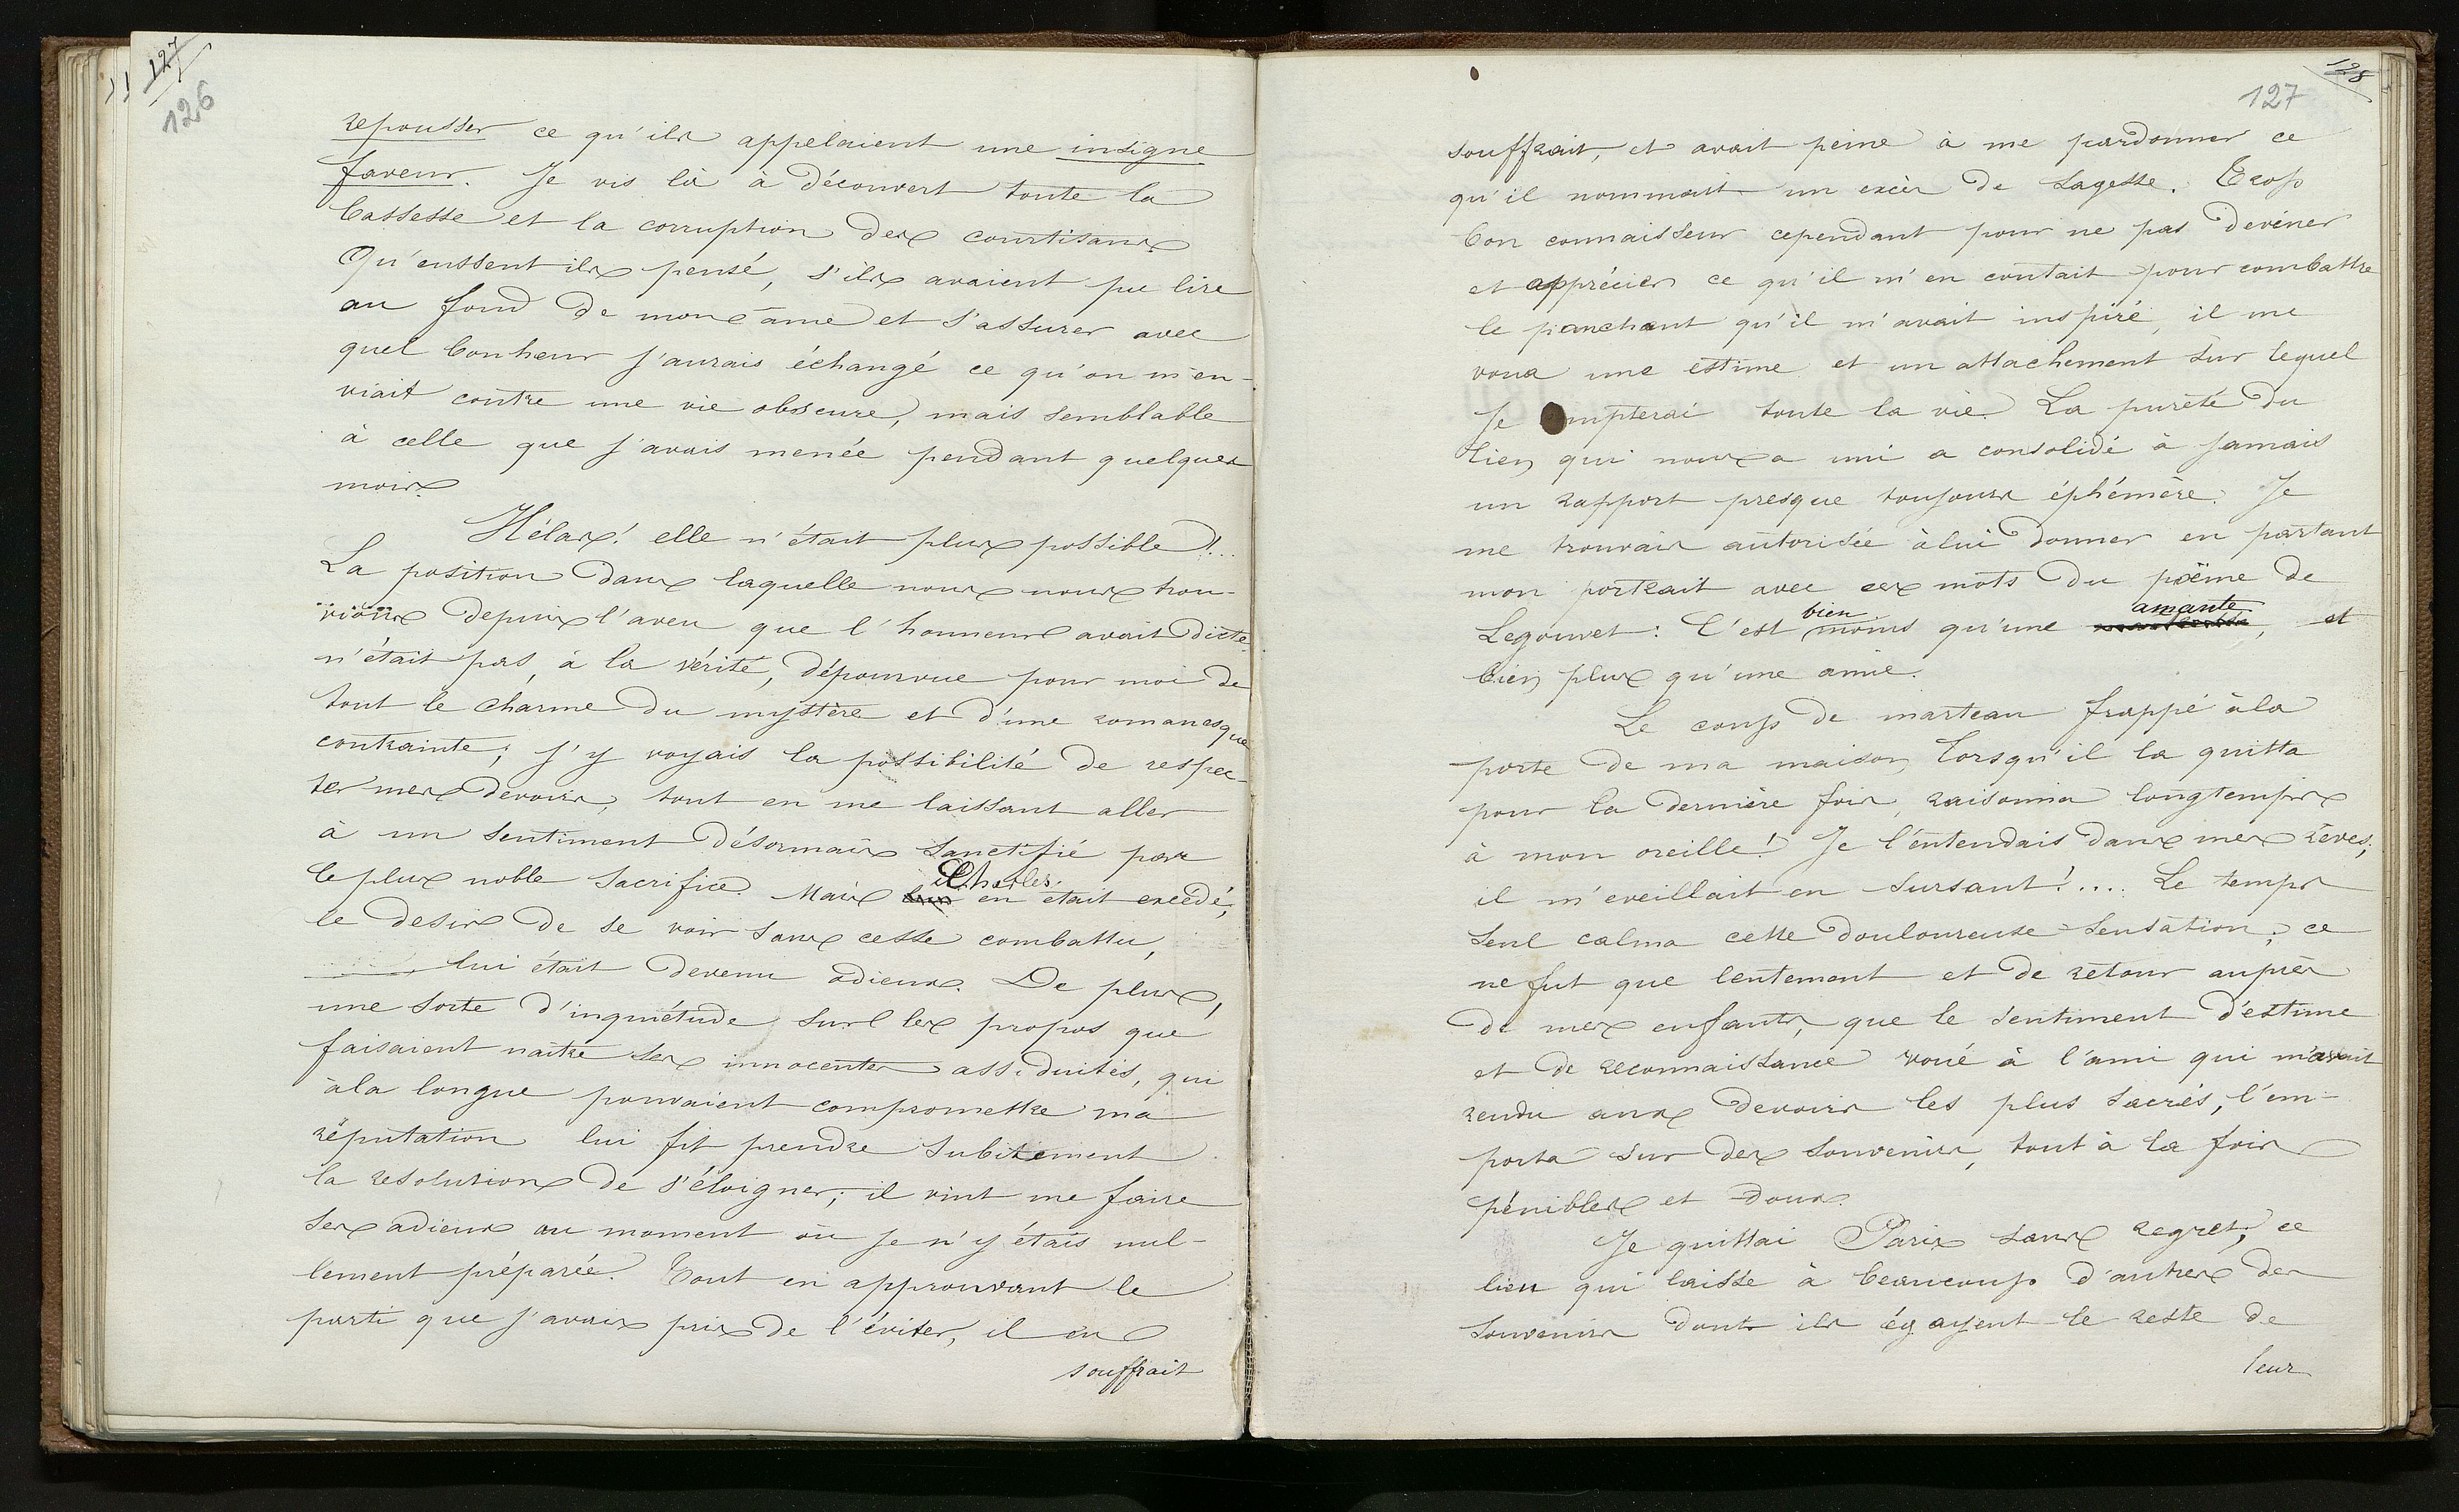 127
126
repousser ce qu'ils appelaient une insigne
faveur. Je vis là à découvert toute la
bassesse et la corruption des courtisans
Qu'eussent ils pensé, s'ils avaient pu lire
au fond de mon âme et s'assurer avec
quel bonheur j'aurais échangé ce qu'on m'en-
viait contre une vie obscure, mais semblable
à celle que j'avais menée pendant quelques
mois.
Hélas! elle n'était plus possible!...
La position dans laquelle nous nous trou-
vions depuis l'aveu que l'honneur avait dicté
n'était pas, à la vérité, dépourvue pour moi de
tout le charme du mystère et d'une romanesque
contrainte; j'y voyais la possibilité de respec-
ter mes devoirs, tout en me laissant aller
à un sentiment désormais sanctifié par
le plus noble sacrifice. Mais Charles en était excédé,
le desir de se voir sans cesse combattu,
lui était devenu odieux. De plus,
une sorte d'inquiétude sur les propos que
faisaient naître ses innocentes assiduités, qui
à la longue pouvaient compromettre ma
réputation lui fit prendre subitement
la resolution de s'éloigner; il vint me faire
ses adieux au moment où je n'y étais nul-
lement préparée. Tout en approuvant le
parti que j'avais pris de l'éviter, il en
souffrait
128
127
souffrait, et avait peine à me pardonner ce
qu'il nommait un excès de sagesse. Trop
bon connaisseur cependant pour ne pas deviner
et apprécier ce qu'il m'en coutait pour combattre
le panchant qu'il m'avait inspiré, il me
voua une estime et un attachement sur lequel
Je compterai toute la vie. La pureté du
lien qui nous a uni a consolidé à jamais
un rapport presque toujours éphémère. Je
me trouvais autorisée à lui donner en partant
mon portrait avec ces mots du poëme de
Legouvet: C'est bien moins qu'une amante, et
bien plus qu'une amie.
Le coup de marteau frappé à la
porte de ma maison, lorsqu'il la quitta
pour la dernière fois, raisonna longtemps
à mon oreille! Je l'entendais dans mes rêves;
il m'eveillait en sursant!.... Le temps
seul calma cette douloureuse sensation; ce
ne fut que lentement et de retour auprès
de mes enfants, que le sentiment d'estime
et de reconnaissance voué à l'ami qui m'avait
rendu aux devoirs les plus sacrés, l'em-
porta sur des souvenirs, tout à la fois
pénibles et doux.
Je quittai Paris sans regret, ce
lieu qui laisse à beaucoup d'autres des
souvenirs dont ils égayent le reste de
leur